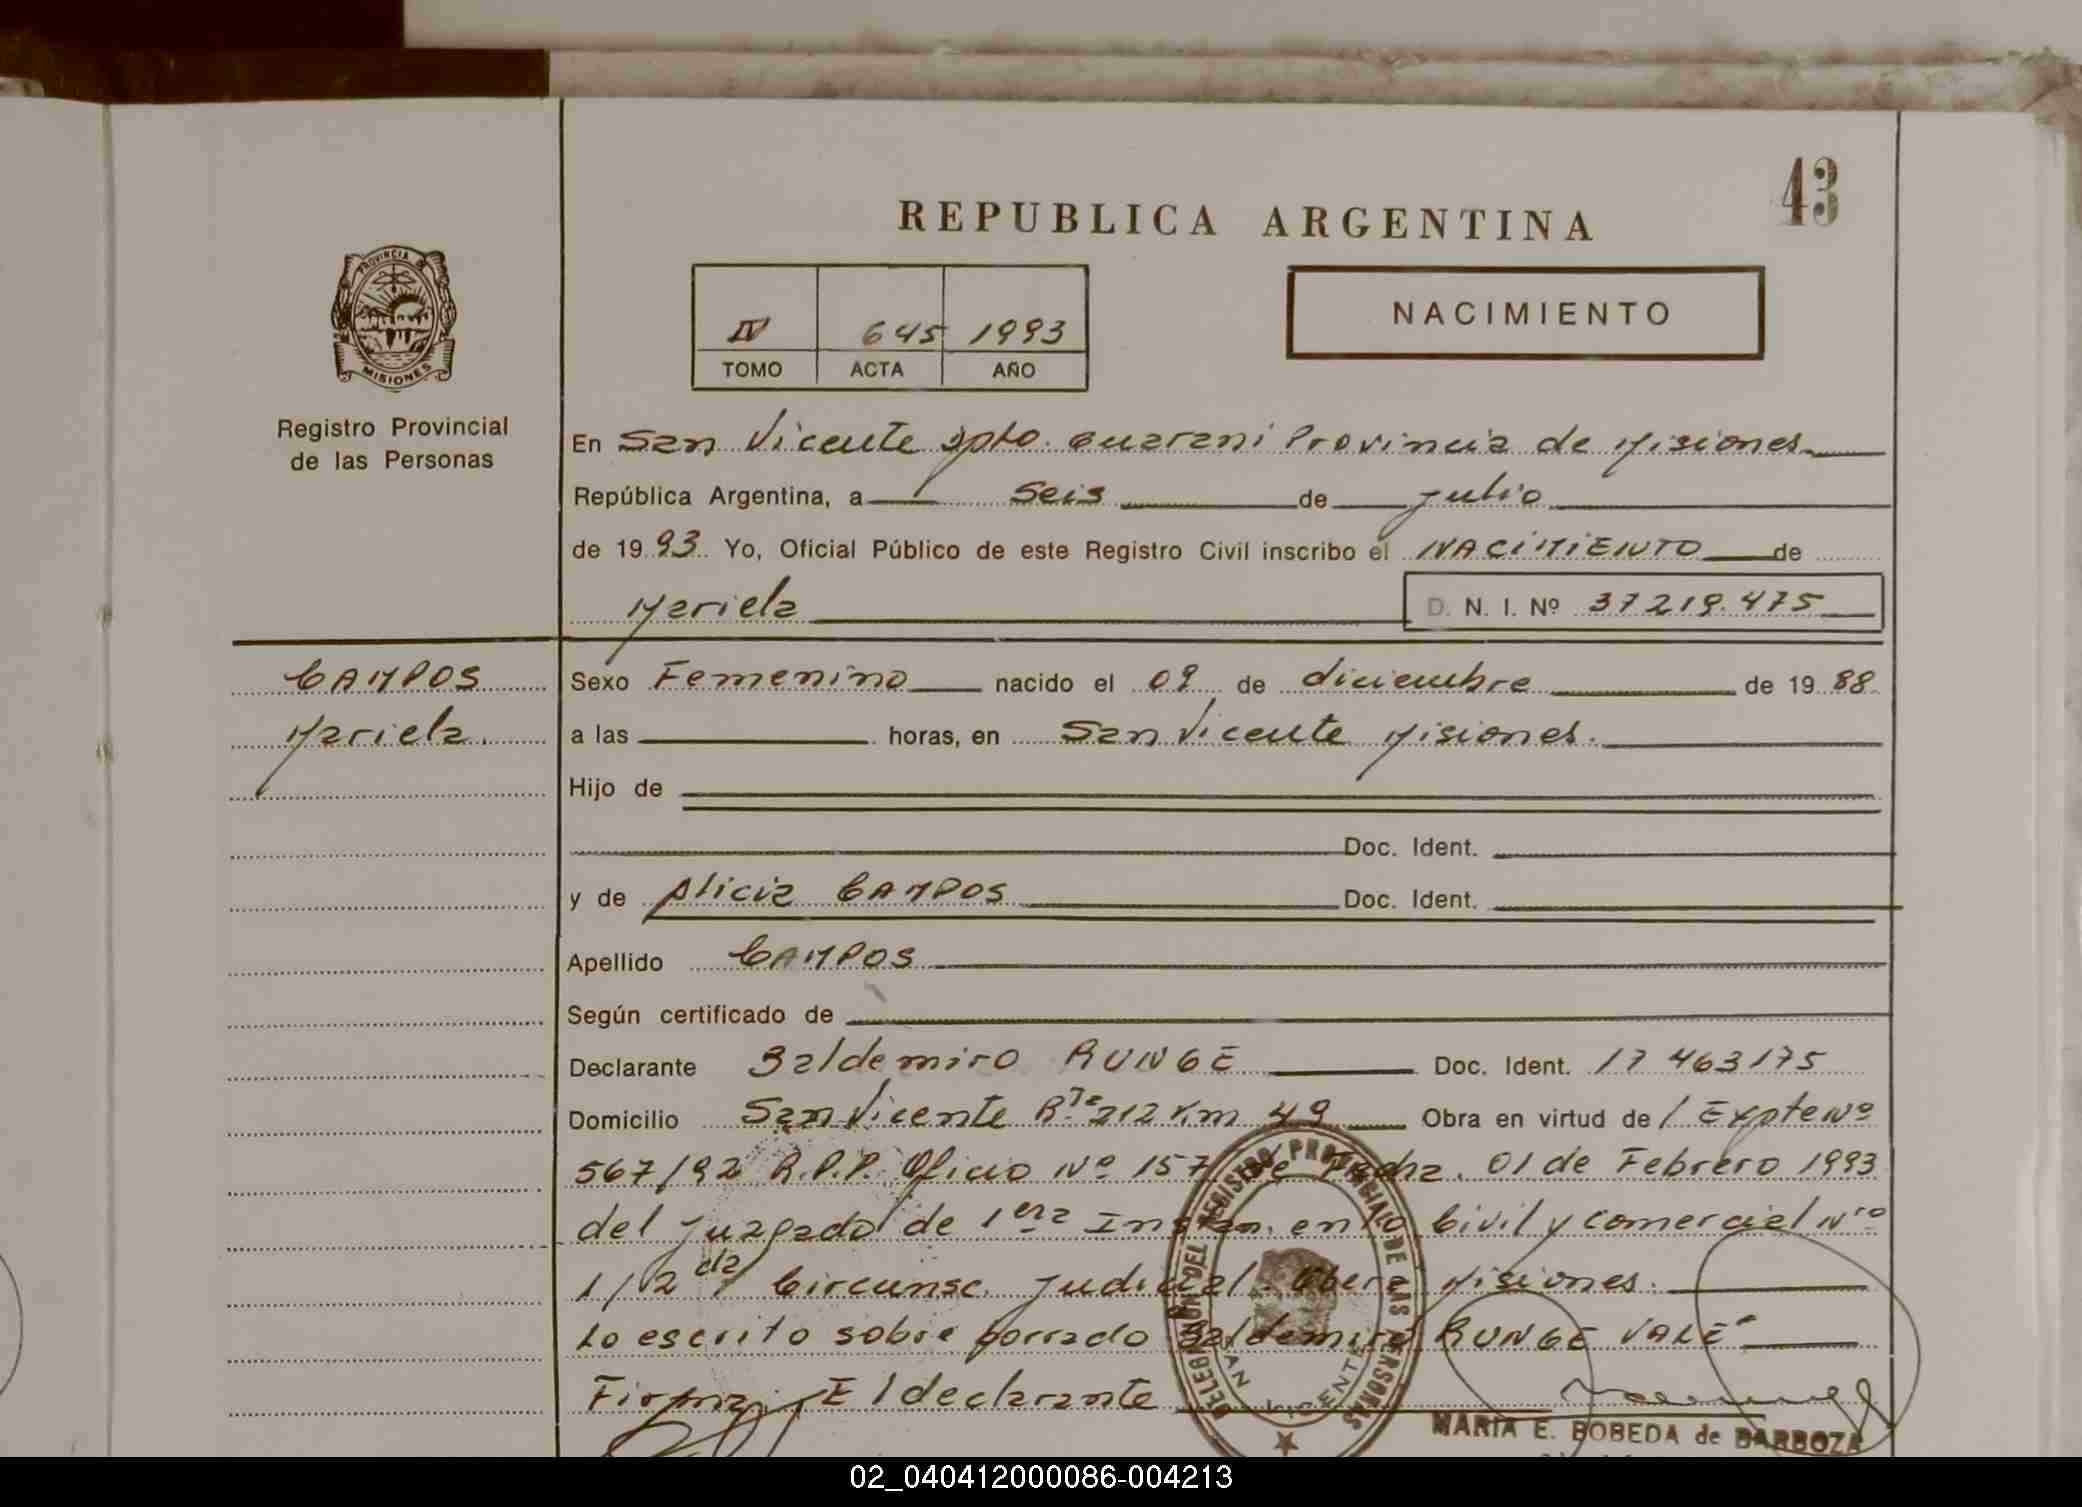 43
REPUBLICA ARGENTINA
PROVINCIA DE
MISIONES
IV 645 1993
TOMO ACTA AÑO
NACIMIENTO
Registro Provincial
de las Personas
En San Vicente Dpto. Guarani Provincia de Misiones
República Argentina, a Seis de Julio
de 1993 Yo, Oficial Público de este Registro Civil inscribo el NACIMIENTO de
Mariela D. N. I. Nº 37219.475
CAMPOS
Mariela.
Sexo Femenino nacido el 09 de diciembre de 1988
a las horas, en San Vicente Misiones.
Hijo de
Doc. Ident.
y de Alicia CAMPOS Doc. Ident.
Apellido CAMPOS
Según certificado de
Declarante Baldemiro RUNGE Doc. Ident. 17 463175
Domicilio San Vicente R.Ta 212 Km 49 Obra en virtud de / Expte Nº
567/92 R.P.P. Oficio Nº 157 de Fecha. 01 de Febrero 1993
del Juzgado de 1era Instan. en lo Civil y Comercial Nro
1/2da Circunsc. Judicial. Obera Misiones.
Lo escrito sobre borrado Baldemiro RUNGE VALE
Firma: El declarante
DELEGACION DEL REGISTRO PROVINCIAL DE LAS PERSONAS
SAN VICENTE
MARIA E. BOBEDA de BARBOZA
02_040412000086-004213